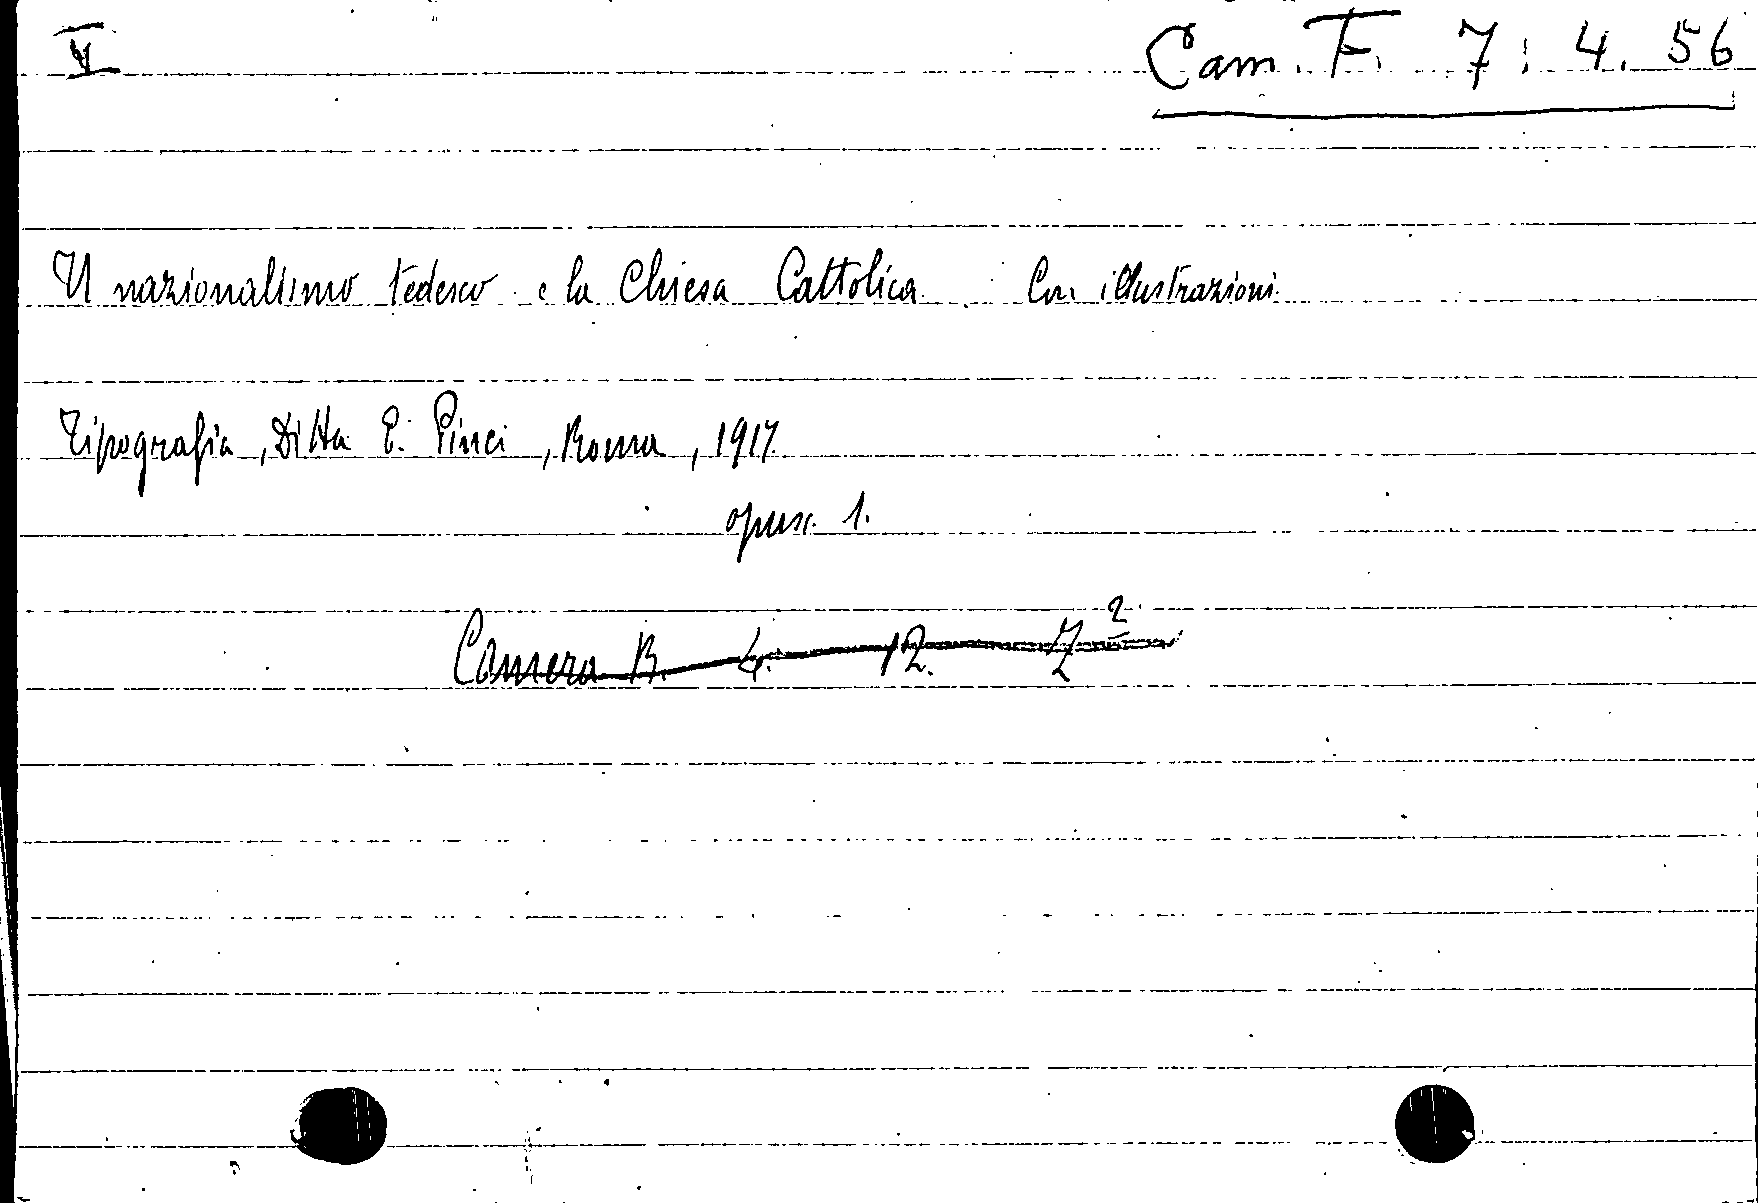 V
Cam. F. 7. 4. 56
Il nazionalismo tedesco e la Chiesa Cattolica. Con illustrazioni.
Tipografia, Ditta E. Pinci, Roma, 1917.
opusc. 1.
Camera B. 4. 12. 7²